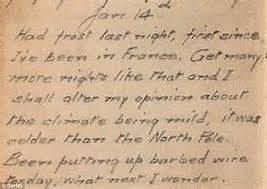 Jan. 14th
Had frost last night, first since
I've been in France. Get many
more nights like that and I
shall alter my opinion about
the climate being mild, it was
colder than the North Pole.
Been putting up barbed wire
to-day, what next I wonder.